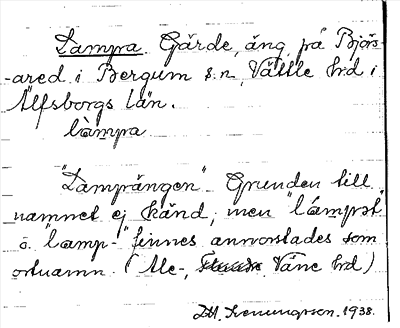 Lampa. Gärde, äng, på Björs-
-ared i Bergum s:n, Vättle hd i
Älfsborgs län.
làmpa
"Lampängen". Grunden till
namnet ej känd, men "lámpət
o. "lamp-" finnes annorstädes som
ortnamn (Ale-, Väne hd)
1938.